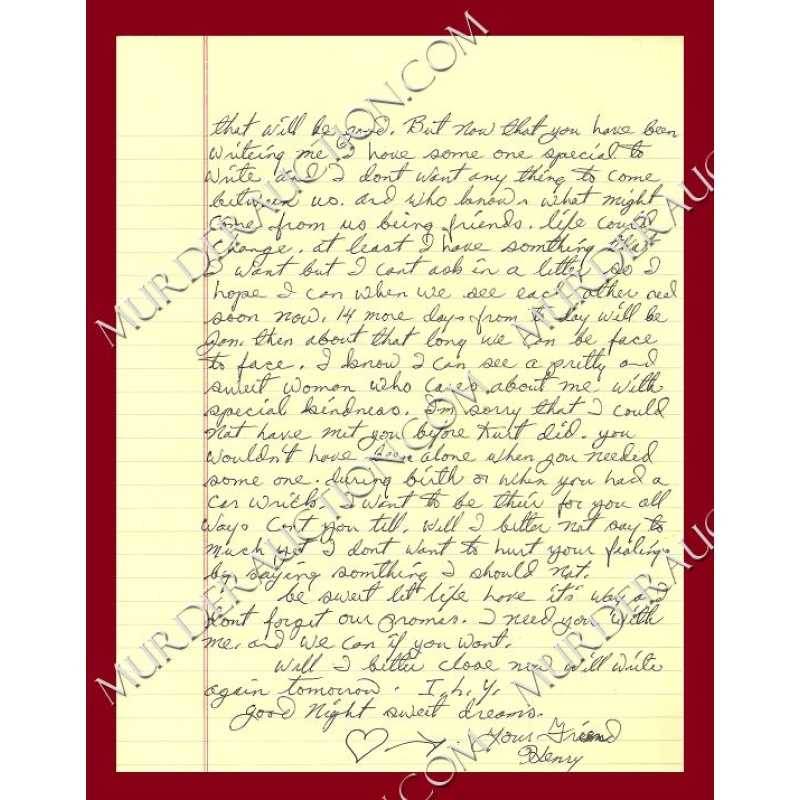 that will be good. But now that you have been
writeing me I have some one special to
write and I dont want any thing to come
between us. and who knows what might
come from us being friends. life could
change. at least I have something that
I want but I cant ask in a letter so I
hope I can when we see each other real
soon now. 14 more days from to day will be
Jan. then about that long we can be face
to face. I know I can see a pretty and
sweet woman who cares about me with
special kindness. I'm sorry that I could
not have met you before Kurt did. you
wouldn't have been alone when you needed
some one. during birth or when you had a
car wrick. I want to be their for you all
ways cant you tell. Will I better not say to
much yet I dont want to hurt your fealings
by saying something I should not.
be sweet let life have it's way and
dont forget our promas. I need you with
me. and we can if you want.
Will I better close now will write
again tomorrow. I. L. Y.
good night sweet dreams.
Your Friend
Henry
MURDERAUCTION.COM
MURDERAUCTION.COM
MURDERAUCTION.COM
MURDERAUCTION.COM